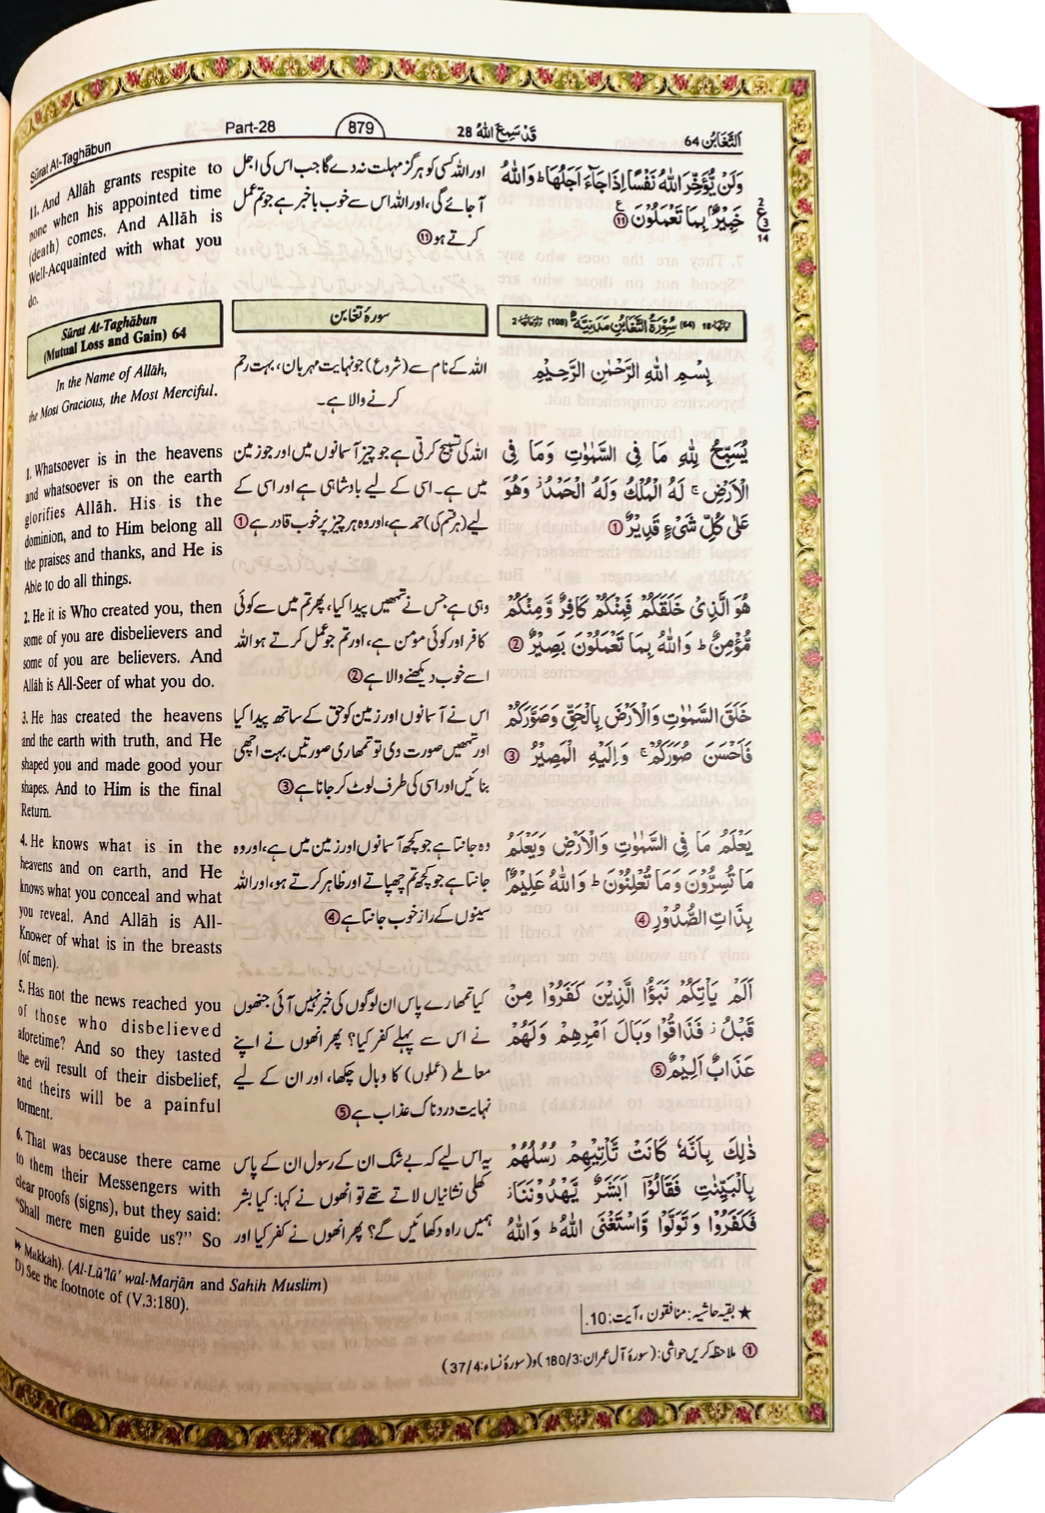 Sûrat At-Taghâbun
Part-28
879
قَدْ سَمِعَ اللهُ 28
اَلتَّغَابُن 64
11. And Allâh grants respite to
none when his appointed time
(death) comes. And Allâh is
Well-Acquainted with what you
do.
اور اللہ کسی کو ہرگز مہلت نہ دے گا جب اس کی اجل
آجائے گی، اور اللہ اس سے خوب باخبر ہے جو تم عمل
کرتے ہو ⑪
وَلَنْ يُّؤَخِّرَ اللهُ نَفْسًا اِذَا جَآءَ اَجَلُهَا ؕ وَاللهُ
خَبِيْرٌۢ بِمَا تَعْمَلُوْنَ ⑪
2
ع
3
14
Sûrat At-Taghâbun
(Mutual Loss and Gain) 64
سورۂ تغابن
سُوْرَةُ التَّغَابُنِ مَدَنِيَّةٌ (64) (108)
In the Name of Allâh,
the Most Gracious, the Most Merciful.
اللہ کے نام سے (شروع) جو نہایت مہربان، بہت رحم
کرنے والا ہے۔
بِسْمِ اللهِ الرَّحْمٰنِ الرَّحِيْمِ
1. Whatsoever is in the heavens
and whatsoever is on the earth
glorifies Allâh. His is the
dominion, and to Him belong all
the praises and thanks, and He is
Able to do all things.
اللہ کی تسبیح کرتی ہے جو چیز آسمانوں میں اور جو زمین
میں ہے۔ اسی کے لیے بادشاہی ہے اور اسی کے
لیے (ہر قسم کی) حمد ہے، اور وہ ہر چیز پر خوب قادر ہے ①
يُسَبِّحُ لِلّٰهِ مَا فِى السَّمٰوٰتِ وَمَا فِى
الْاَرْضِ ۚ لَهُ الْمُلْكُ وَلَهُ الْحَمْدُ ۡ وَهُوَ
عَلٰى كُلِّ شَىْءٍ قَدِيْرٌ ①
2. He it is Who created you, then
some of you are disbelievers and
some of you are believers. And
Allâh is All-Seer of what you do.
وہی ہے جس نے تمھیں پیدا کیا، پھر تم میں سے کوئی
کافر اور کوئی مومن ہے، اور تم جو عمل کرتے ہو اللہ
اسے خوب دیکھنے والا ہے ②
هُوَ الَّذِىْ خَلَقَكُمْ فَمِنْكُمْ كَافِرٌ وَّمِنْكُمْ
مُّؤْمِنٌ ؕ وَاللهُ بِمَا تَعْمَلُوْنَ بَصِيْرٌ ②
3. He has created the heavens
and the earth with truth, and He
shaped you and made good your
shapes. And to Him is the final
Return.
اس نے آسمانوں اور زمین کو حق کے ساتھ پیدا کیا
اور تمھیں صورت دی تو تمھاری صورتیں بہت اچھی
بنائیں اور اسی کی طرف لوٹ کر جانا ہے ③
خَلَقَ السَّمٰوٰتِ وَالْاَرْضَ بِالْحَقِّ وَصَوَّرَكُمْ
فَاَحْسَنَ صُوَرَكُمْ ۚ وَاِلَيْهِ الْمَصِيْرُ ③
4. He knows what is in the
heavens and on earth, and He
knows what you conceal and what
you reveal. And Allâh is All-
Knower of what is in the breasts
(of men).
وہ جانتا ہے جو کچھ آسمانوں اور زمین میں ہے، اور وہ
جانتا ہے جو کچھ تم چھپاتے اور ظاہر کرتے ہو، اور اللہ
سینوں کے راز خوب جانتا ہے ④
يَعْلَمُ مَا فِى السَّمٰوٰتِ وَالْاَرْضِ وَيَعْلَمُ
مَا تُسِرُّوْنَ وَمَا تُعْلِنُوْنَ ؕ وَاللهُ عَلِيْمٌۢ
بِذَاتِ الصُّدُوْرِ ④
5. Has not the news reached you
of those who disbelieved
aforetime? And so they tasted
the evil result of their disbelief,
and theirs will be a painful
torment.
کیا تمھارے پاس ان لوگوں کی خبر نہیں آئی جنھوں
نے اس سے پہلے کفر کیا؟ پھر انھوں نے اپنے
معاملے (عملوں) کا وبال چکھا، اور ان کے لیے
نہایت دردناک عذاب ہے ⑤
اَلَمْ يَاْتِكُمْ نَبَؤُا الَّذِيْنَ كَفَرُوْا مِنْ
قَبْلُ ۡ فَذَاقُوْا وَبَالَ اَمْرِهِمْ وَلَهُمْ
عَذَابٌ اَلِيْمٌ ⑤
6. That was because there came
to them their Messengers with
clear proofs (signs), but they said:
"Shall mere men guide us?" So
یہ اس لیے کہ بے شک ان کے رسول ان کے پاس
کھلی نشانیاں لاتے تھے تو انھوں نے کہا: کیا بشر
ہمیں راہ دکھائیں گے؟ پھر انھوں نے کفر کیا اور
ذٰلِكَ بِاَنَّهٗ كَانَتْ تَّاْتِيْهِمْ رُسُلُهُمْ
بِالْبَيِّنٰتِ فَقَالُوْۤا اَبَشَرٌ يَّهْدُوْنَنَا ۡ
فَكَفَرُوْا وَتَوَلَّوْا وَّاسْتَغْنَى اللهُ ؕ وَاللهُ
Makkah). (Al-Lû'lû' wal-Marjân and Sahih Muslim)
D) See the footnote of (V.3:180).
★ بقیہ حاشیہ: منافقون، آیت: 10.
① ملاحظہ کریں حواشی: (سورۂ آل عمران: 180/3) و (سورۂ نساء: 37/4)